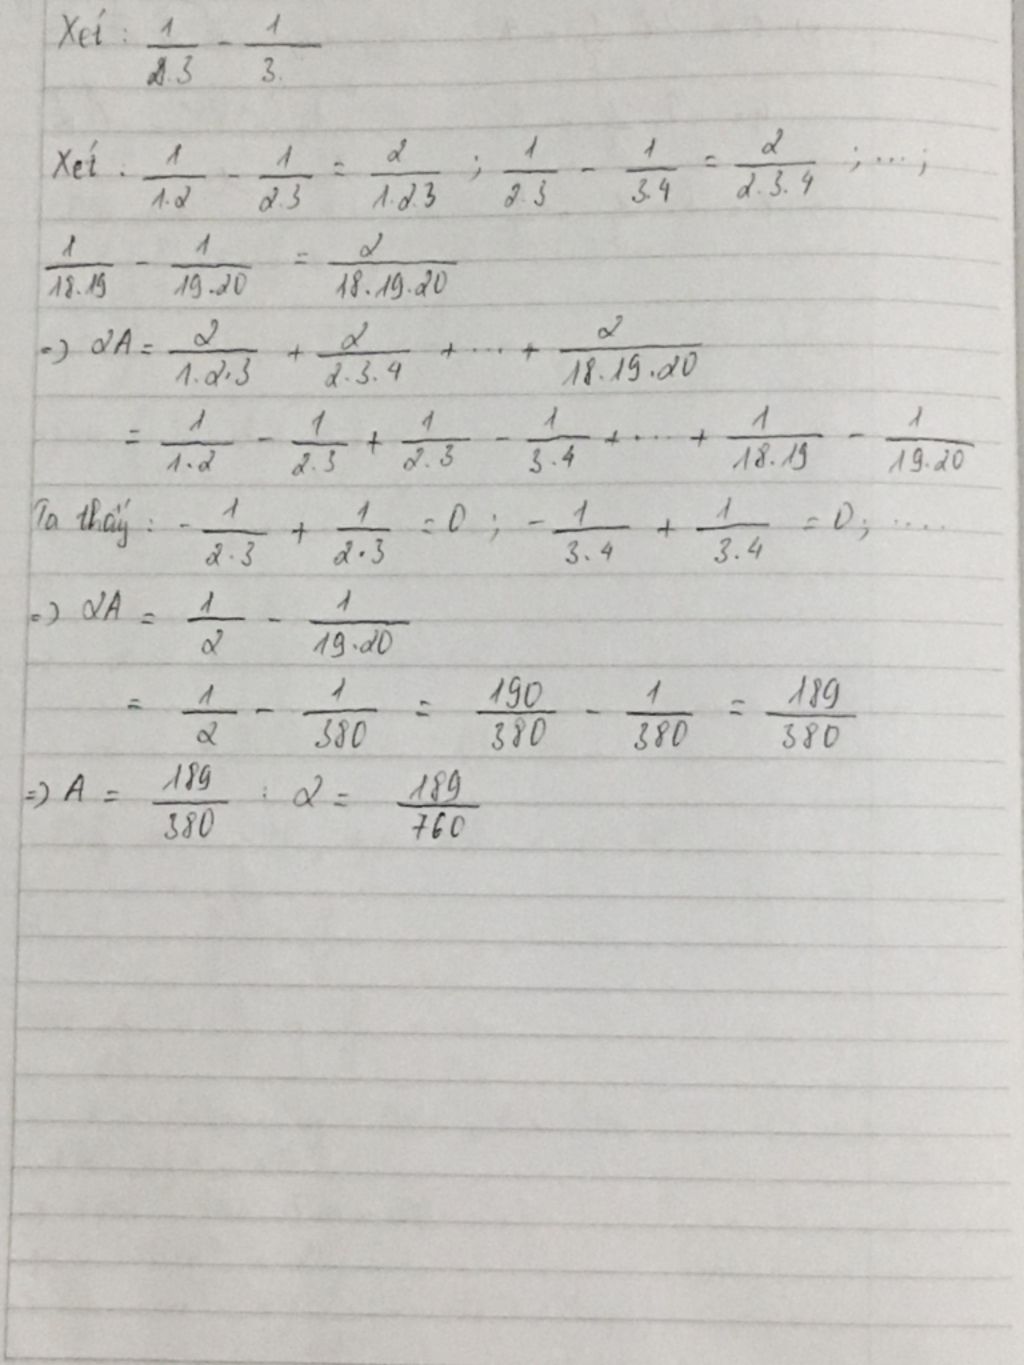 Xét : 1/2.3 - 1/3.
Xét : 1/1.2 - 1/2.3 = 2/1.2.3 ; 1/2.3 - 1/3.4 = 2/2.3.4 ; ... ;
1/18.19 - 1/19.20 = 2/18.19.20
=) 2A = 2/1.2.3 + 2/2.3.4 + ... + 2/18.19.20
= 1/1.2 - 1/2.3 + 1/2.3 - 1/3.4 + ... + 1/18.19 - 1/19.20
Ta thấy : - 1/2.3 + 1/2.3 = 0 ; - 1/3.4 + 1/3.4 = 0 ; ....
=) 2A = 1/2 - 1/19.20
= 1/2 - 1/380 = 190/380 - 1/380 = 189/380
=) A = 189/380 : 2 = 189/760